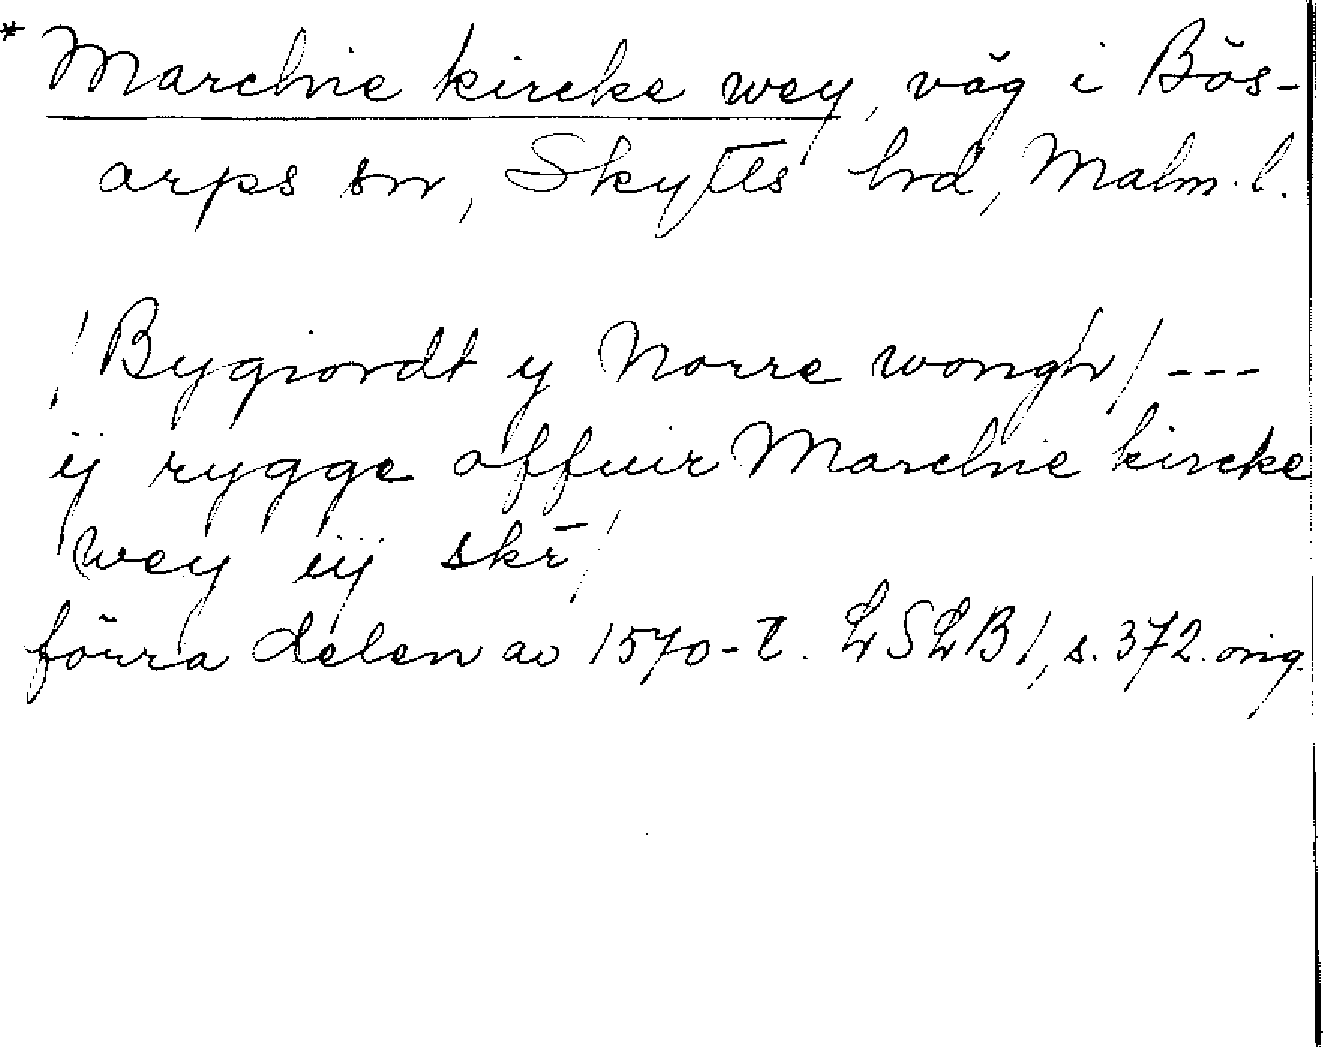 * Marchie kircke wey, väg i Bös-
arps sn, Skytts hd, Malm. l.
/Bygiordt y Norre wongh/ ---
ij rygge offuir Marchie kircke
wey iij skr̄/
förra delen av 1570-t. LSLB1, s. 372. orig.